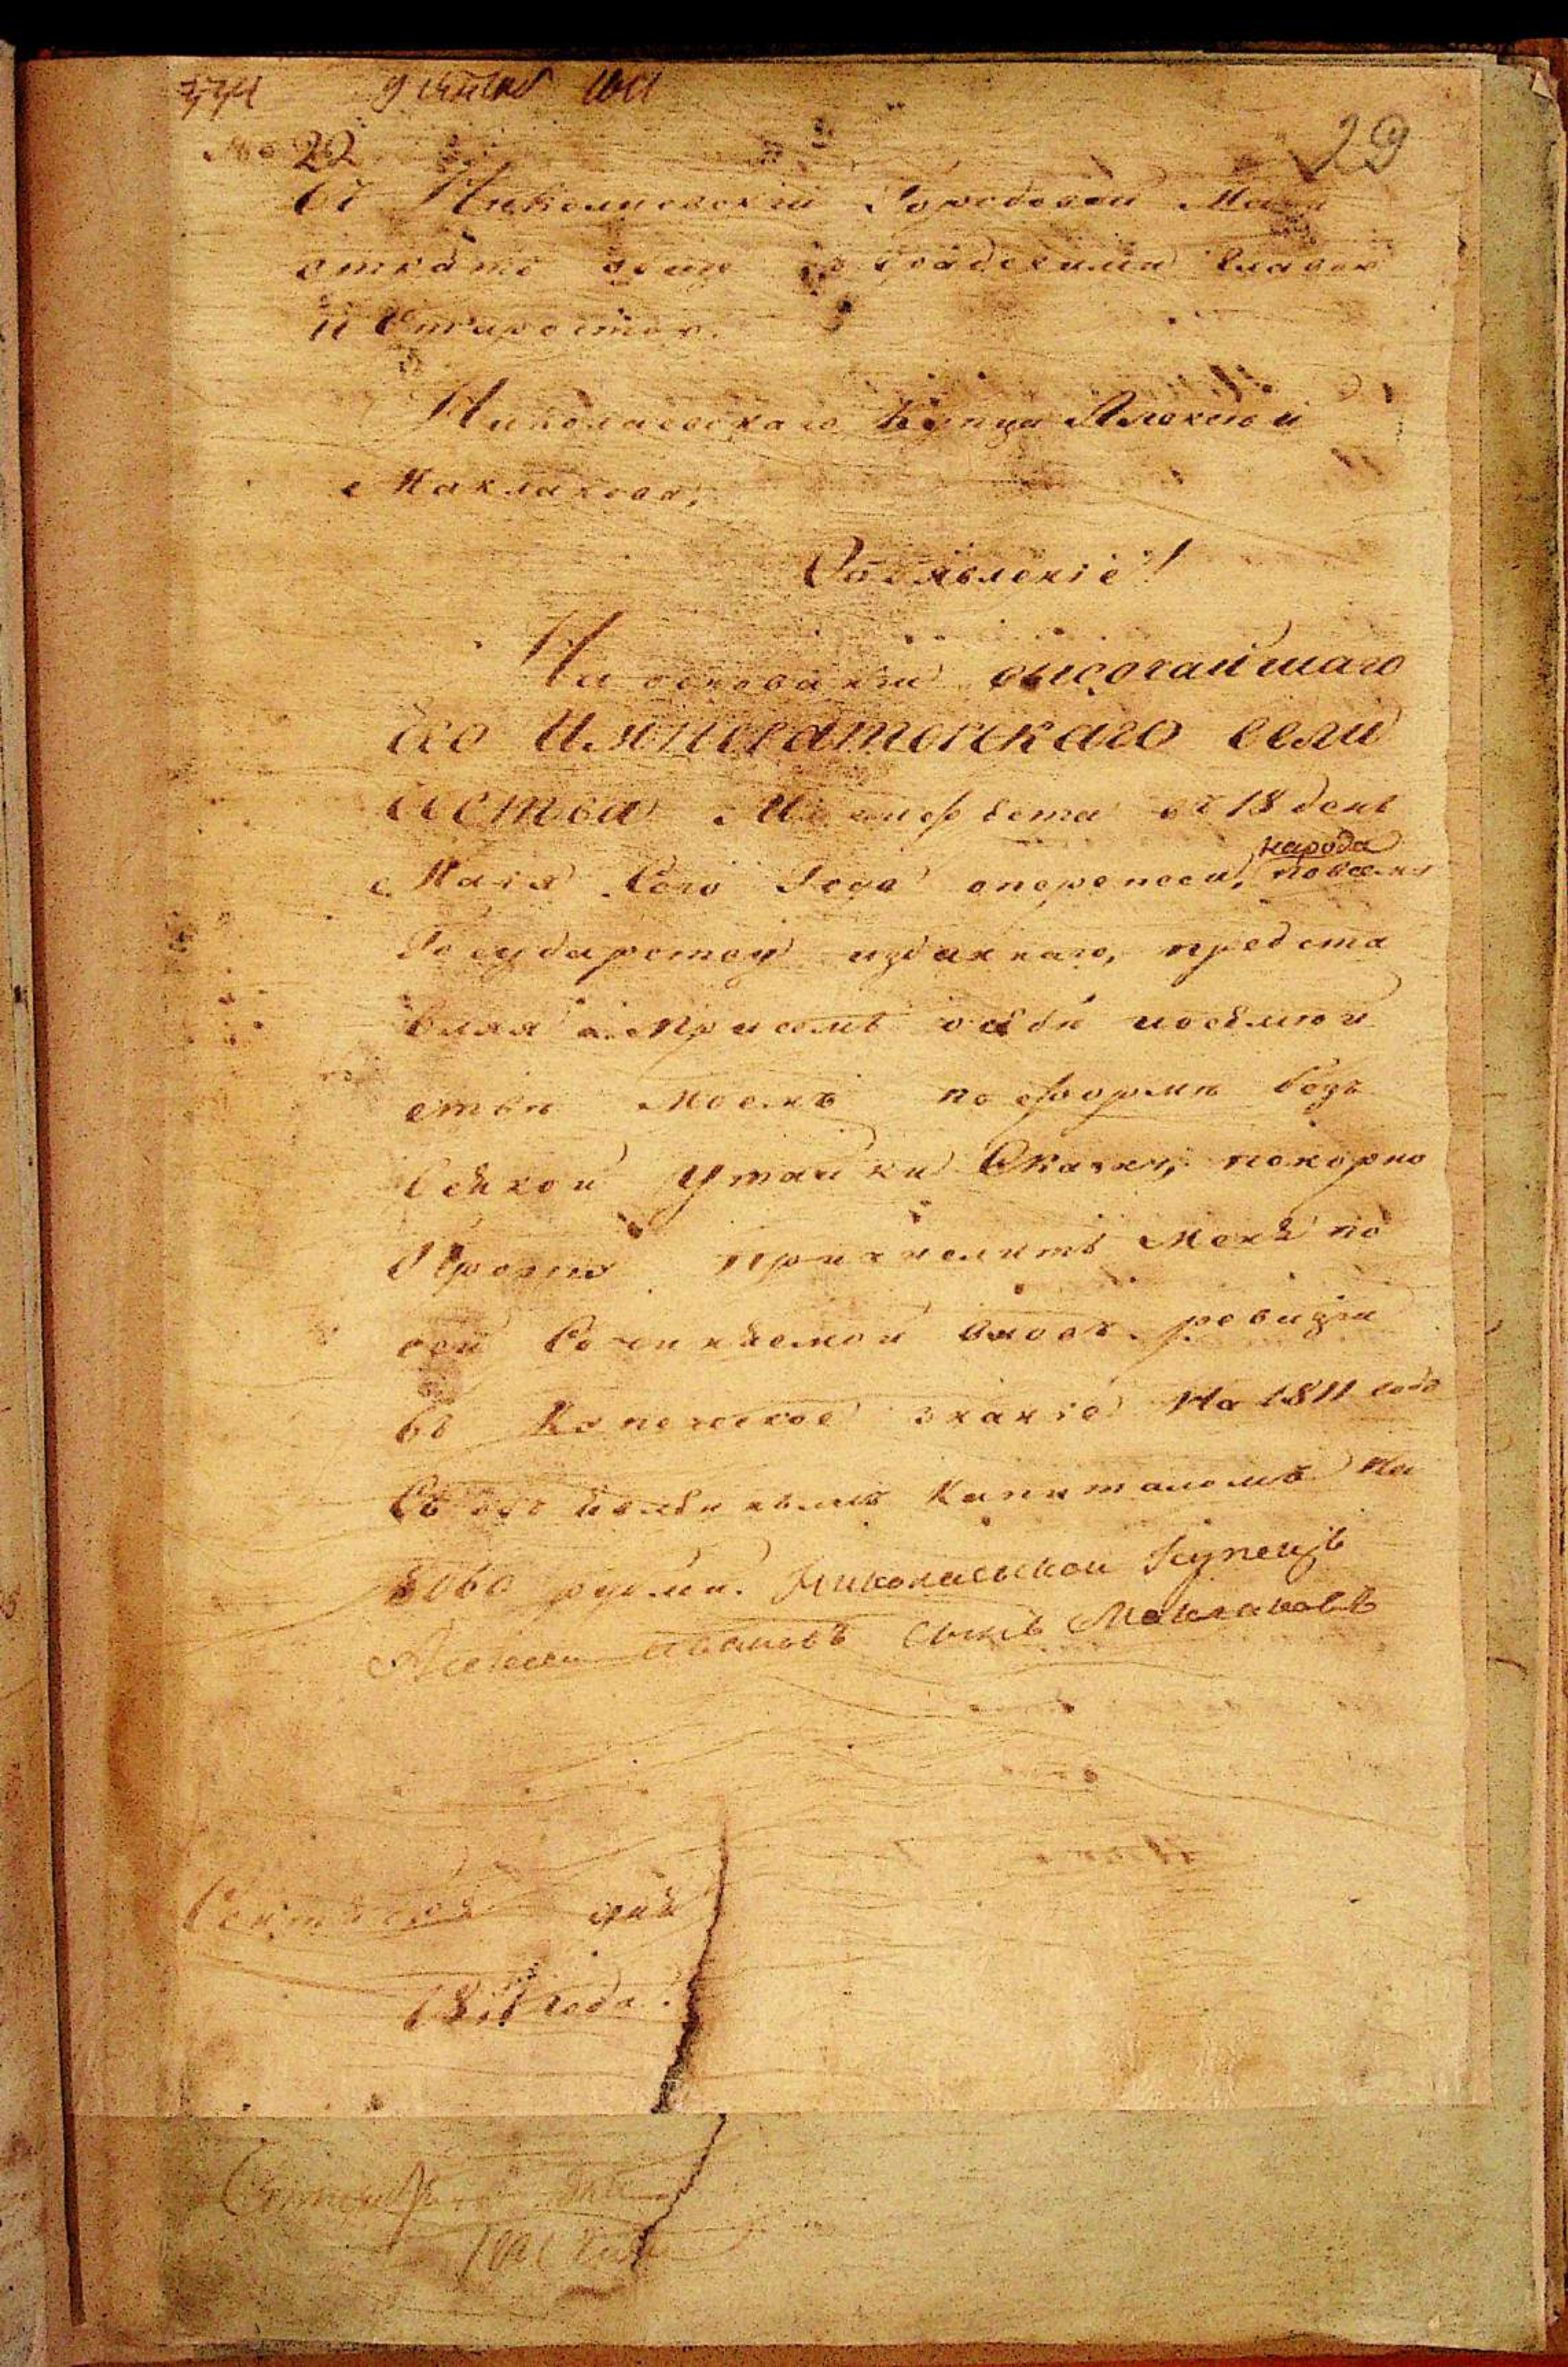 29
№ 22
въ Николаевскiй Городовой Маги
стратъ обще съ градскими Главою
и Старостою.
Николаевскаго Купца Алексея
Маклакова,
Объявленiе!
На основанiи высочайшаго
Его Императорскаго вели
чества Манифеста въ 18 день
Маiя Сего Года о переписи, народа повсему
Государству изданнаго, представ
вляя при семъ о себе и о семей
стве моемъ по форме безъ
всякой Утайки Сказку, покорно
Прошу причислить Меня по
сей Сочиняемой вновь ревизiи
въ Купеческое званiе На 1811 годъ
Съ объявленнымъ Капиталомъ На
рублей. Николаевской Купецъ
Алексей Ивановъ Сынъ Маклаковъ
Сентября дня
1811 года.
Сентября дня
1811 года